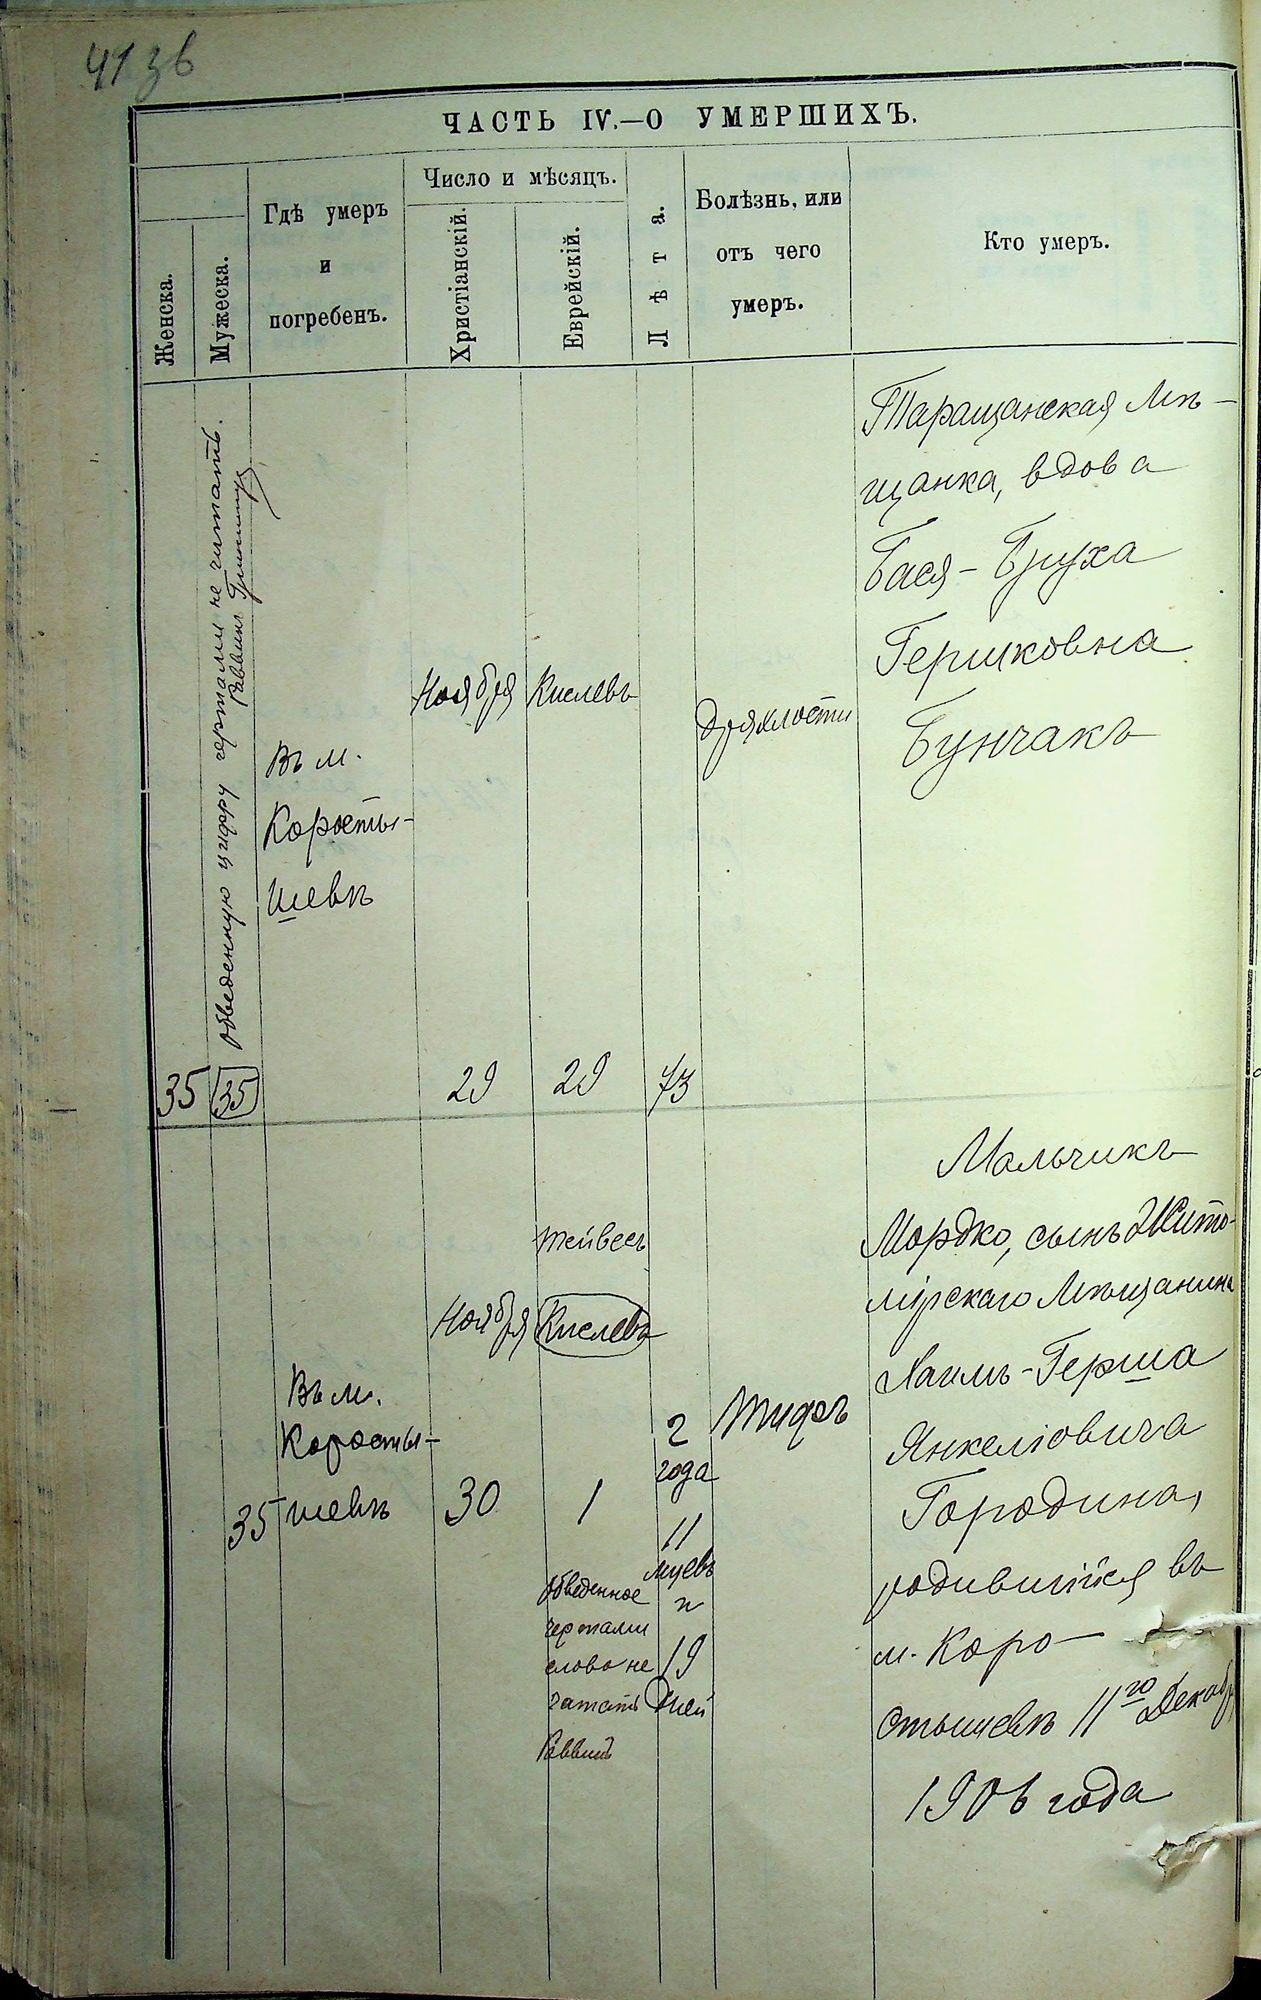 41 36
ЧАСТЬ IV.—О УМЕРШИХЪ.
Женска.
Мужеска.
Гдѣ умеръ
и
погребенъ.
Число и мѣсяцъ.
Христіанскій.
Еврейскій.
Лѣта.
Болѣзнь, или
отъ чего
умеръ.
Кто умеръ.
обведенную цифру чертами не читать.
Раввинъ
35
35
Въ м.
Коросты-
шевѣ
Ноября
29
Кислевъ
29
73
дряхлости
Таращанская мѣ-
щанка, вдова
Бася-Бруха
Гершковна
Бунчакъ
35
Въ м.
Коросты-
шевѣ
Ноября
30
Тейвесъ
Кислевъ
1
обведенное
чертами
слово не
читать
Раввинъ
2
года
11
мцевъ
и
19
дней
Тифъ
Мальчикъ
Мордко, сынъ Жито-
мірскаго мѣщанина
Хаимъ-Герша
Янкеліовича
Городина,
родившійся въ
м. Коро-
стышевѣ 11го Декабр
1906 года